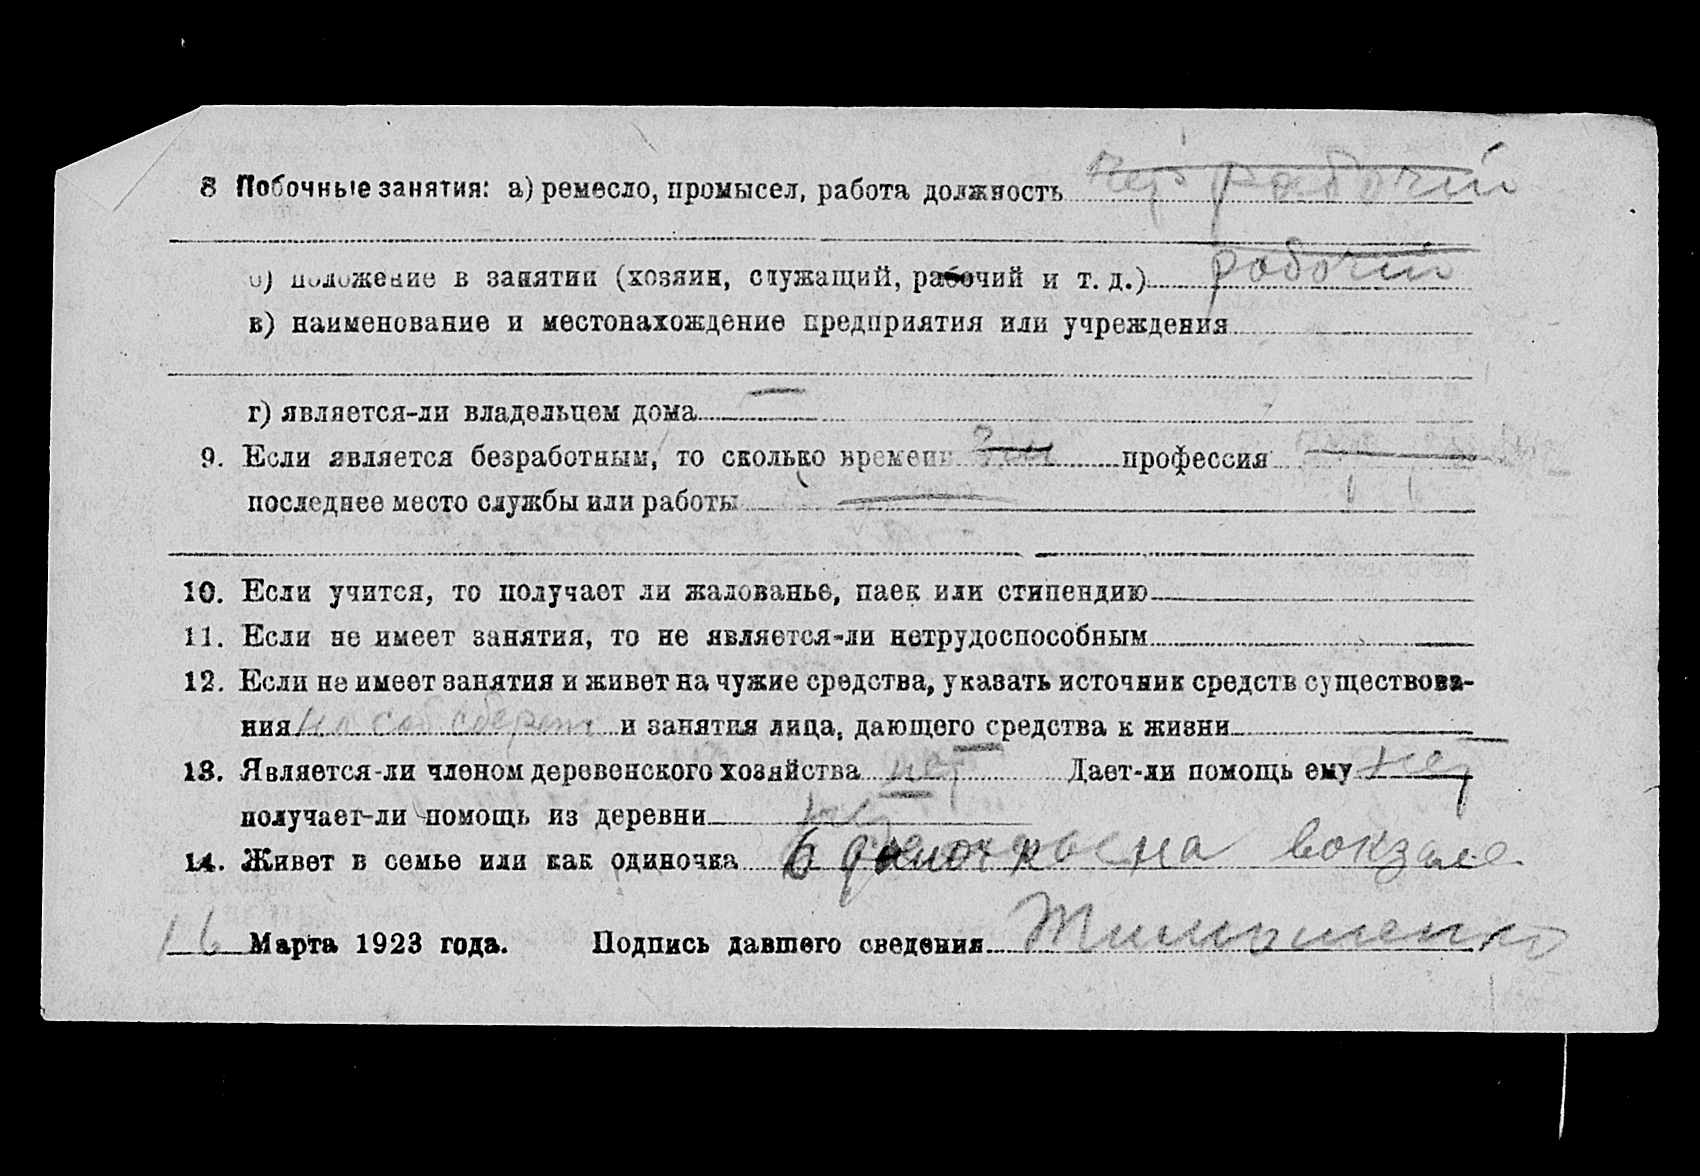 8 Побочные занятия: а) ремесло, промысел, работа должность рабочий
б) положение в занятии (хозяин, служащий, рабочий и т. д.) рабочий
в) наименование и местонахождение предприятия или учреждения
г) является-ли владельцем дома —
9. Если является безработным, то сколько времени профессия
последнее место службы или работы —
10. Если учится, то получает ли жалованье, паек или стипендию
11. Если не имеет занятия, то не является-ли нетрудоспособным
12. Если не имеет занятия и живет на чужие средства, указать источник средств существова-
ния и занятия лица, дающего средства к жизни
13. Является-ли членом деревенского хозяйства нет Дает-ли помощь ему нет
получает-ли помощь из деревни нет
14. Живет в семье или как одиночка на вокзале
16 Марта 1923 года. Подпись давшего сведения